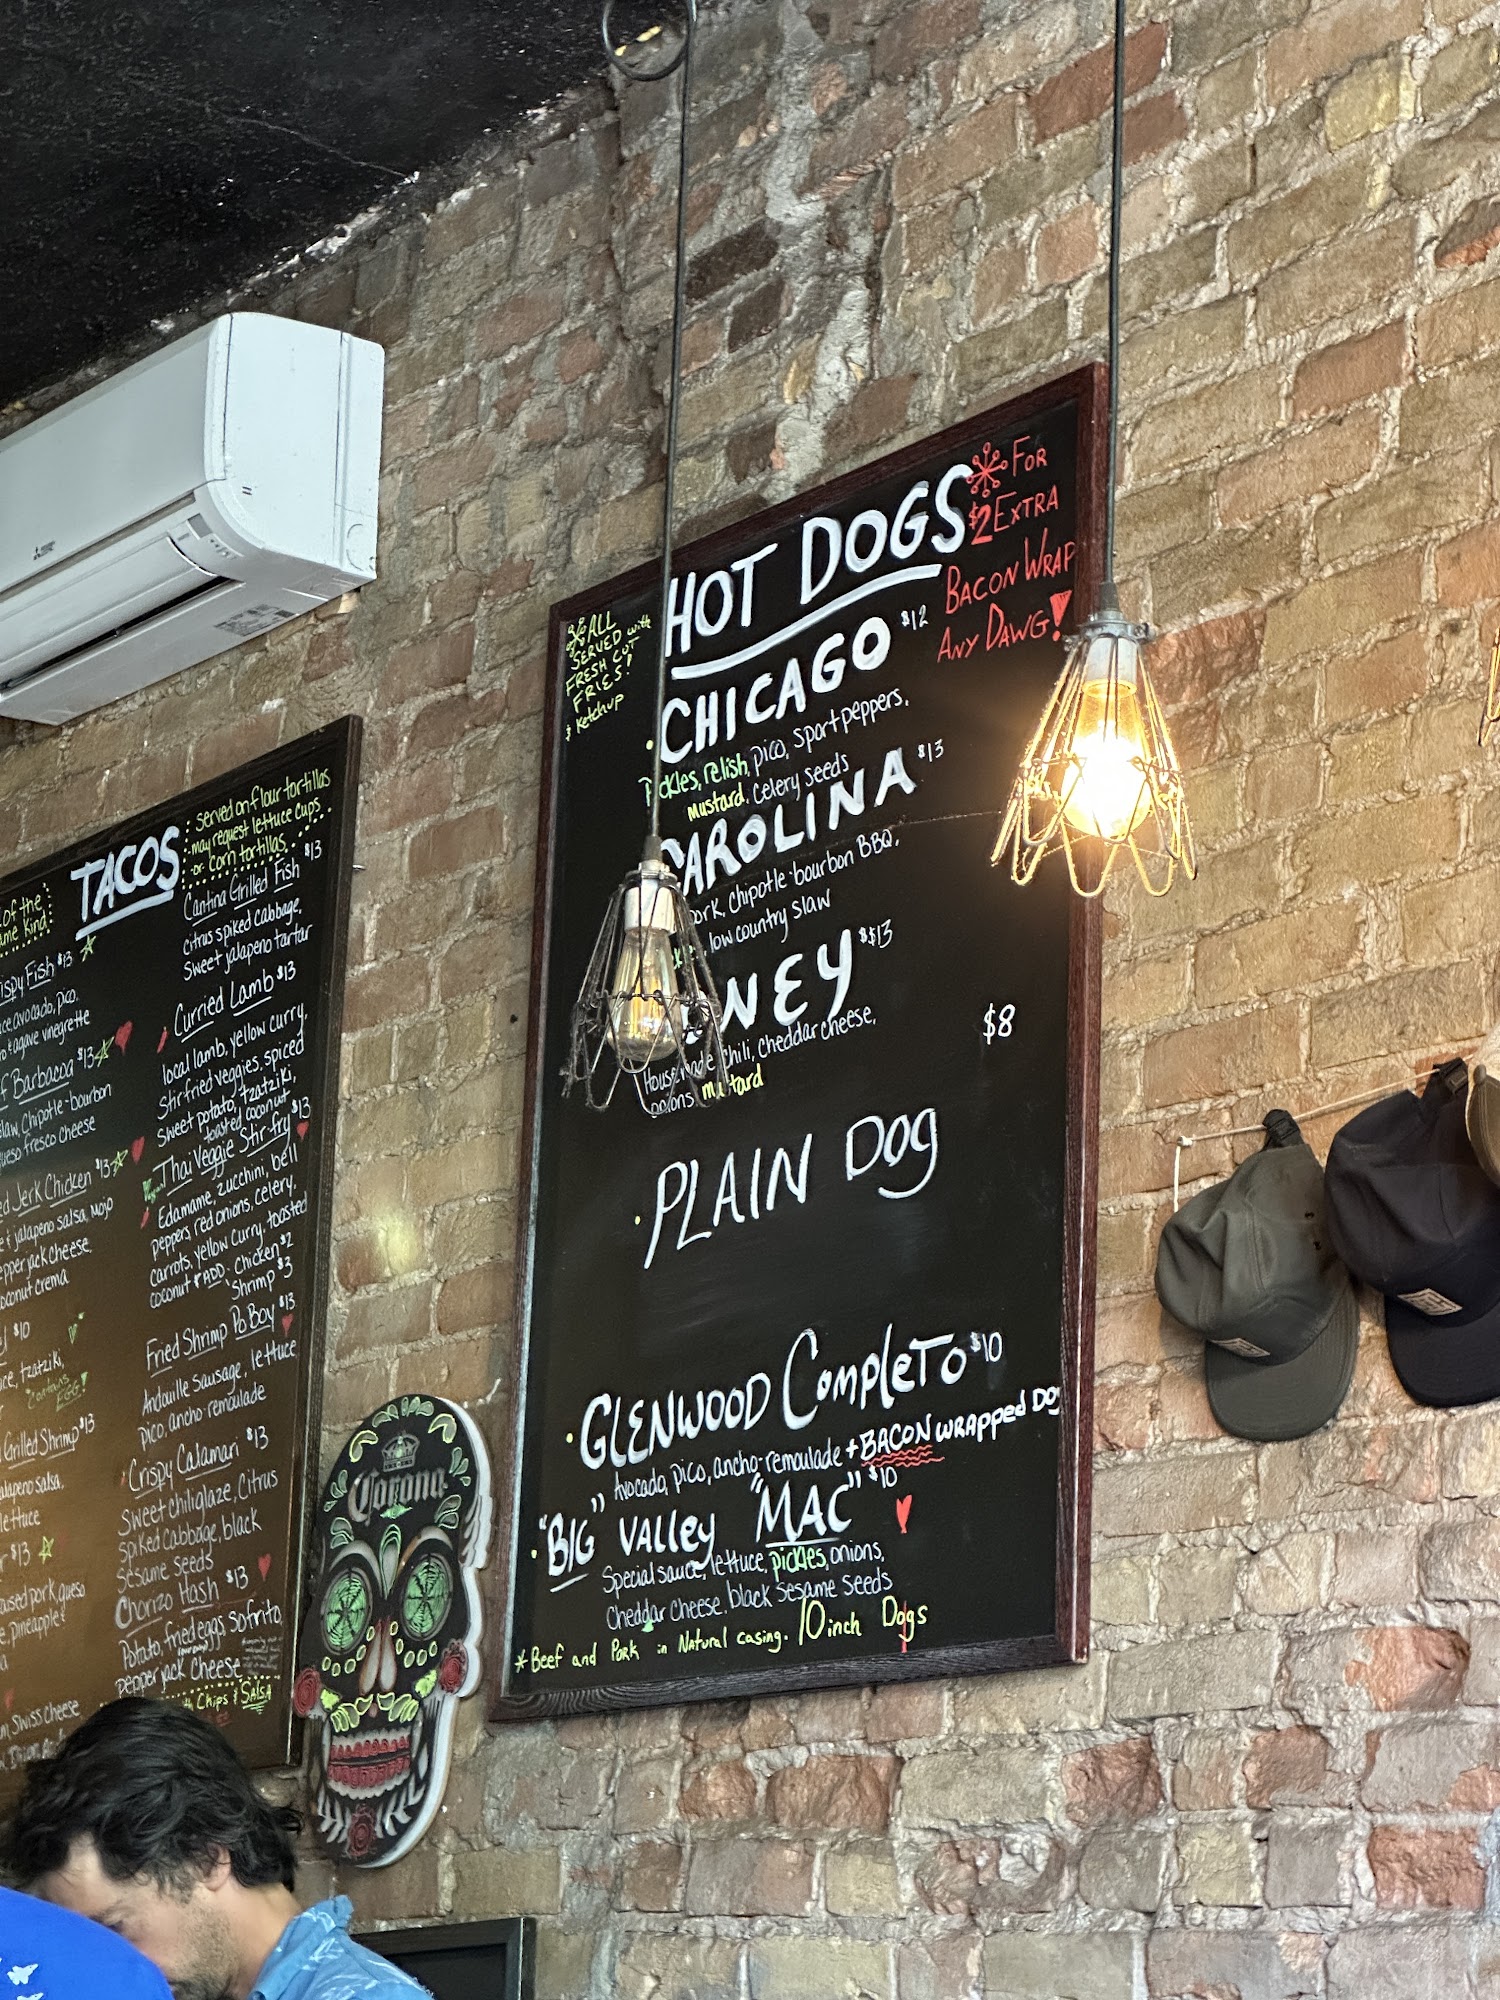 of the
ame kind
TACOS
served on flour tortillas
may request lettuce cups
or corn tortillas.
ispy Fish $13
ce, avocado, pico,
ro & agave vinegrette
f Barbacoa $13
slaw, Chipotle-bourbon
ueso fresco cheese
ed Jerk Chicken $13
e & jalapeno salsa, mojo
epper jack cheese,
oconut crema
$10
ce, tzatziki,
contains
EGG!
Grilled Shrimp $13
alapeno salsa,
lettuce
$13
aised pork, queso
e, pineapple &
Swiss cheese
Cantina Grilled Fish $13
citrus spiked cabbage,
Sweet jalapeno tartar
Curried Lamb $13
local lamb, yellow curry,
Stir fried veggies, spiced
Sweet potato, tzatziki,
toasted coconut
Thai Veggie Stir-fry $13
Edamame, zucchini, bell
peppers, red onions, celery,
carrots, yellow curry, toasted
coconut *ADD: Chicken $2
Shrimp $3
Fried Shrimp Po Boy $13
Andouille Sausage, lettuce
pico, ancho-remoulade
Crispy Calamari $13
Sweet chili glaze, Citrus
Spiked Cabbage, black
Sesame seeds
Chorizo Hash $13
Potato, fried eggs, sofrito,
pepper jack cheese
Chips & SALSA
Corona
ALL
SERVED with
FRESH CUT
FRIES!
& Ketchup
HOT DOGS
FOR
$2 EXTRA
BACON WRAP
ANY DAWG!
CHICAGO $12
Pickles, relish, pico, sport peppers,
mustard, celery seeds
CAROLINA $13
pork, chipotle-bourbon BBQ,
low country slaw
NEY $13
Housemade chili, cheddar cheese,
onions, mustard
$8
PLAIN DOG
GLENWOOD COMPLETO $10
Avocado, pico, ancho-remoulade + BACON WRAPPED DOG
"BIG" VALLEY "MAC" $10
Special sauce, lettuce, pickles, onions,
Cheddar cheese, black sesame seeds
*Beef and Pork in Natural casing. 10 inch Dogs